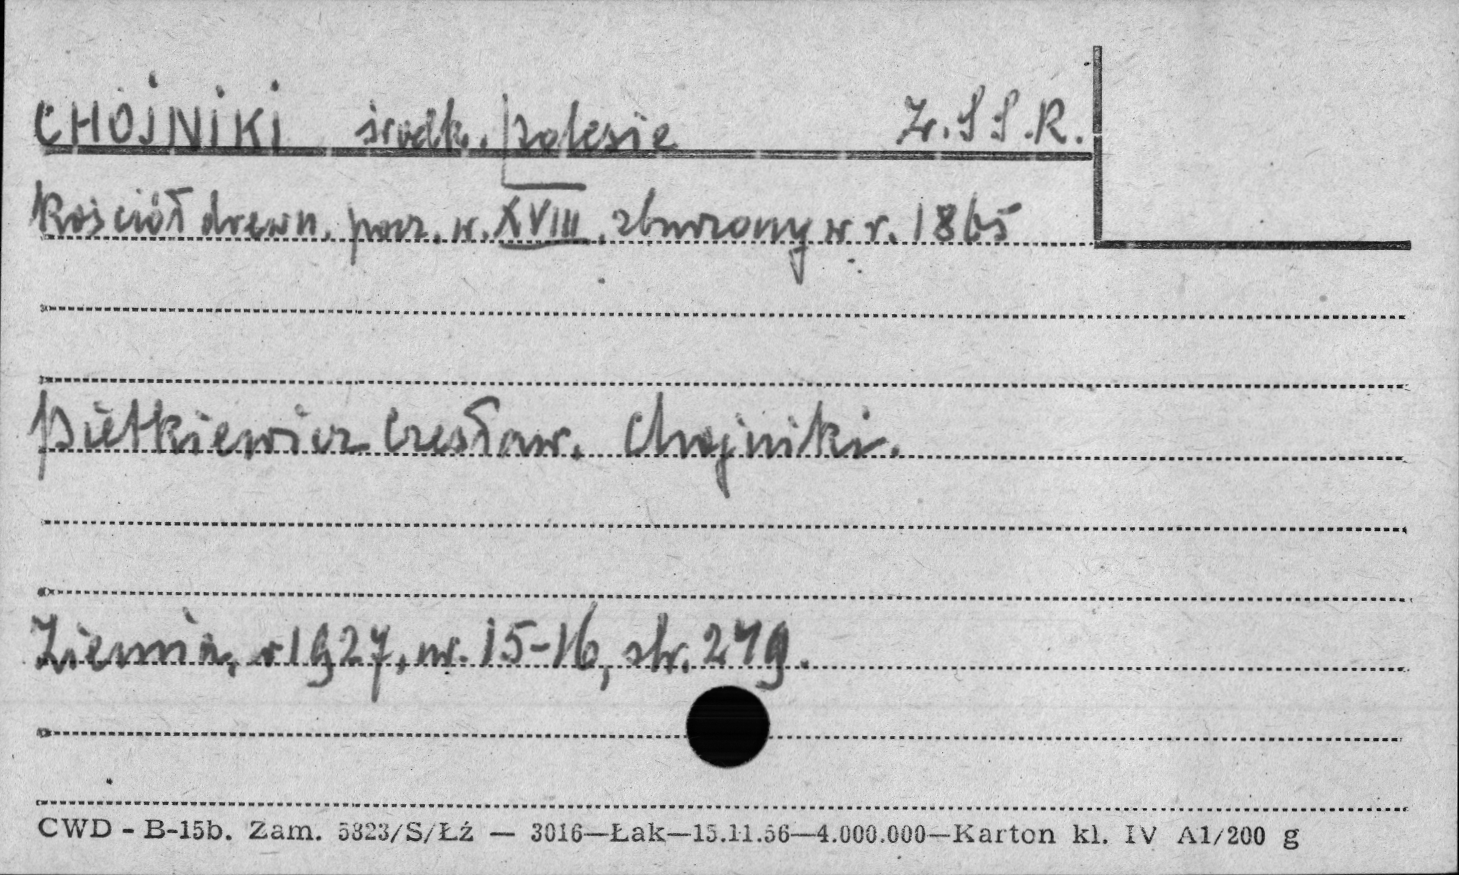 CHOJNIKI środk. Polesie Z.S.S.R.
Kościół drewn. pocz. w. XVIII, zburzony w r. 1865
Pietkiewicz Czesław. Chojniki.
Ziemia, r 1927, nr. 15-16, str. 249.
CWD - B-15b. Zam. 5823/S/Łź — 3016—Łak—15.11.56—4.000.000—Karton kl. IV A1/200 g